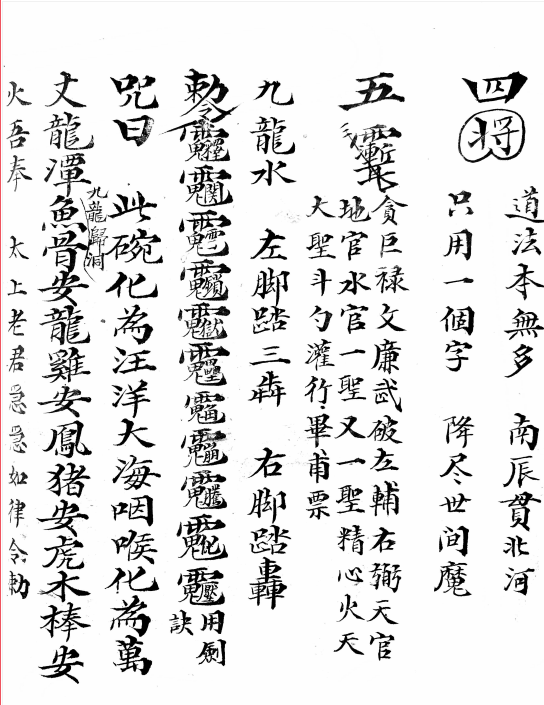 四将
道法本無多 南辰貫北河
只用一個字 降尽世间魔
五
貪巨禄文廉武破左輔右弼天官
地官水官一聖又一聖精心火天
大聖斗勺灌行畢甫票
九龍水 左脚踏三犇 右脚踏轟
勅令 用劍訣
咒曰 此碗化為汪洋大海咽喉化為萬
丈龍潭魚骨安龍雞安鳳猪安虎木棒安
九龍歸洞
火吾奉 太上老君急急如律令勅